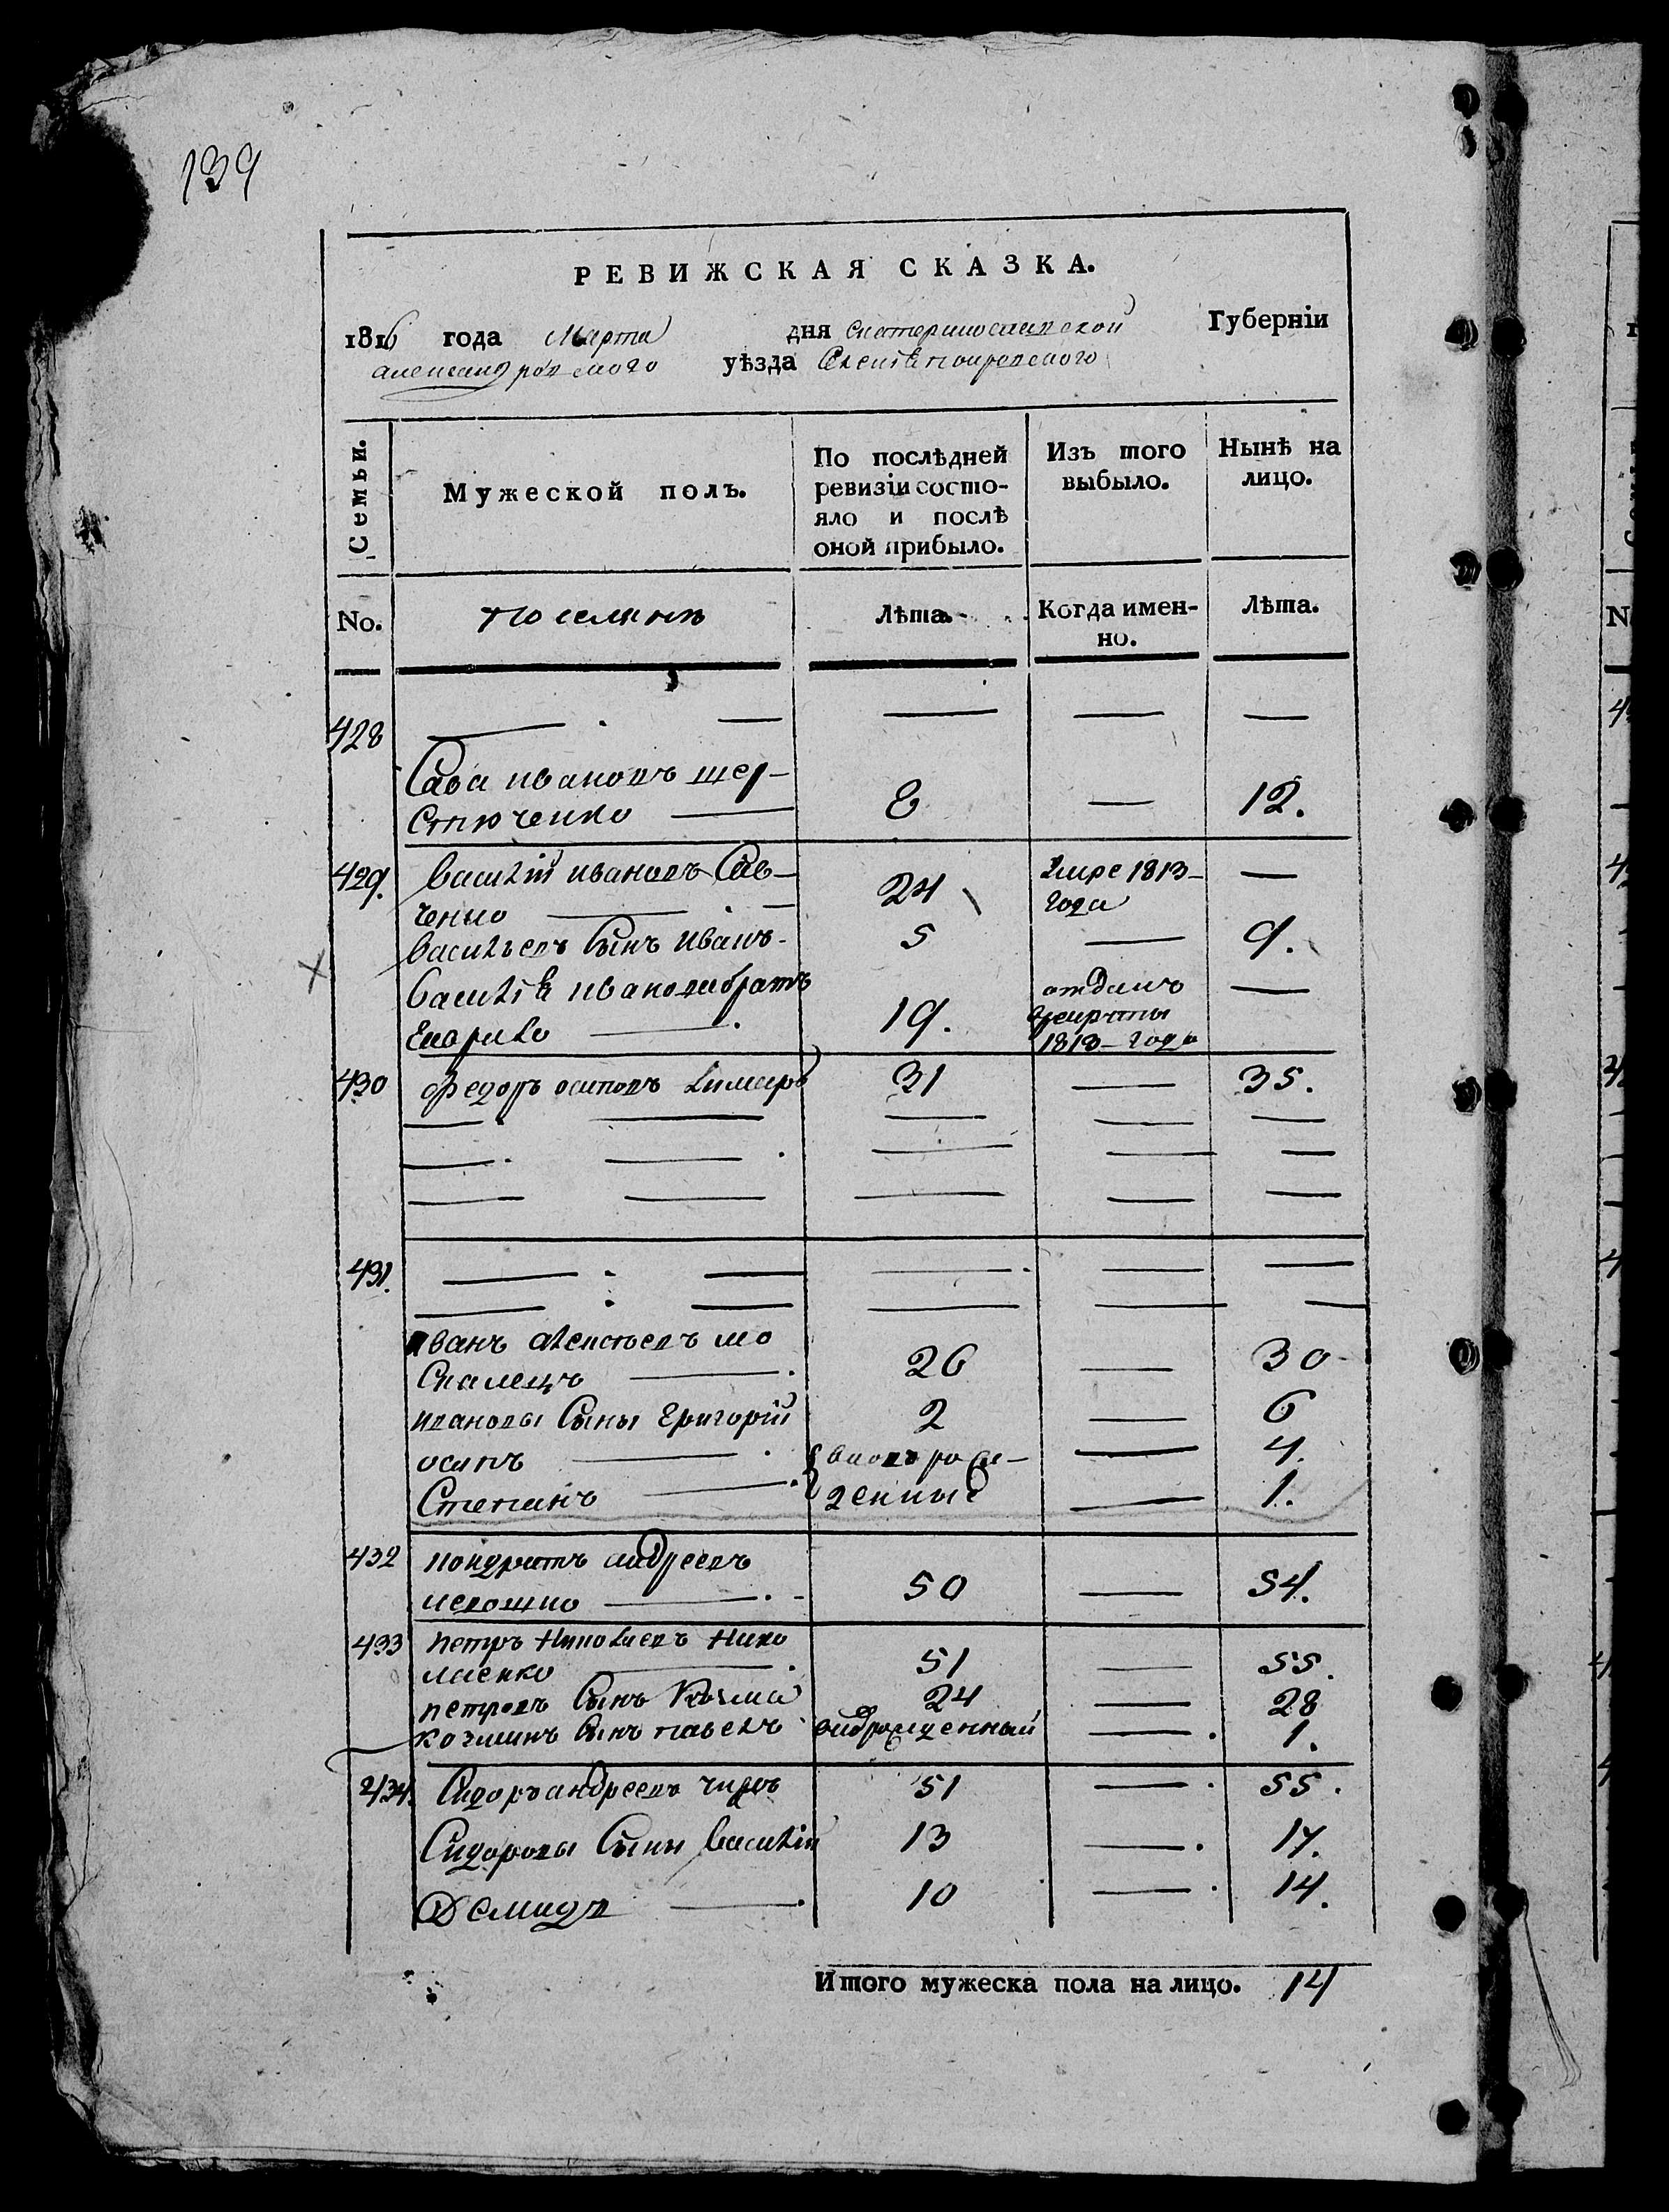 139
РЕВИЖСКАЯ СКАЗКА.
1816 года Марта дня Екатеринославской Губерніи
Александровского уѣзда
Семьи.
Мужеской полъ.
По послѣдней ревизіи состо-
яло и послѣ
оной прибыло.
Изъ того
выбыло.
Нынѣ на
лицо.
No.
Поселянъ
Лѣта.
Когда имен-
но.
Лѣта.
428
Сава ивановъ шер-
стюченко — 8 — 12.
429. василій ивановъ Сав- 24 умре 1813- —
ченко — года
васильевъ сынъ иванъ 5 — 9.
василія иванова братъ отданъ —
Гаврило — 19. 1813 года
430 Федоръ осиповъ 31 — 35.
431.
иванъ алексеевъ мо
скалецъ — 26 — 30
ивановы сыны григорій 2 — 6
осипъ — вновь рож- — 4.
Степанъ — денные — 1.
432 кондратъ андреевъ
— 50 — 54.
433 петръ николаевъ нико
лаенко — 51 — 55.
петровъ сынъ козма 24 — 28
козминъ сынъ павелъ новорожденный — 1.
434. Сидоръ андреевъ 51 — 55.
Сидоровы сыны василій 13 — 17.
Демидъ — 10 — 14.
Итого мужеска пола на лицо. 14